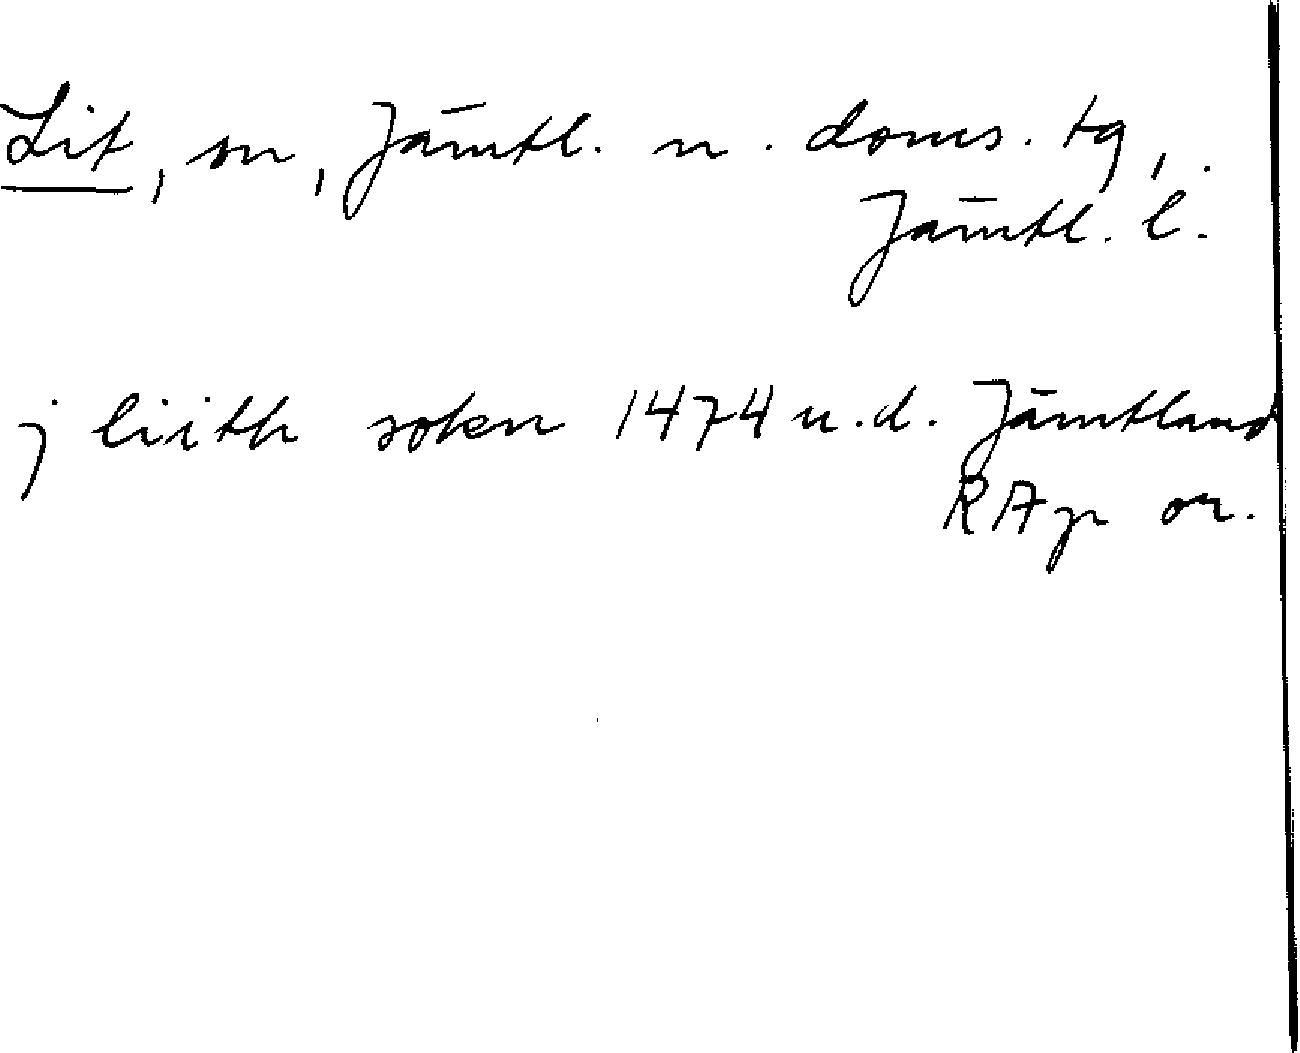 Lit, sn, Jämtl. n. doms. tg,
Jämtl. l.
j liith sokn 1474 u.d. Jämtland
RAp or.